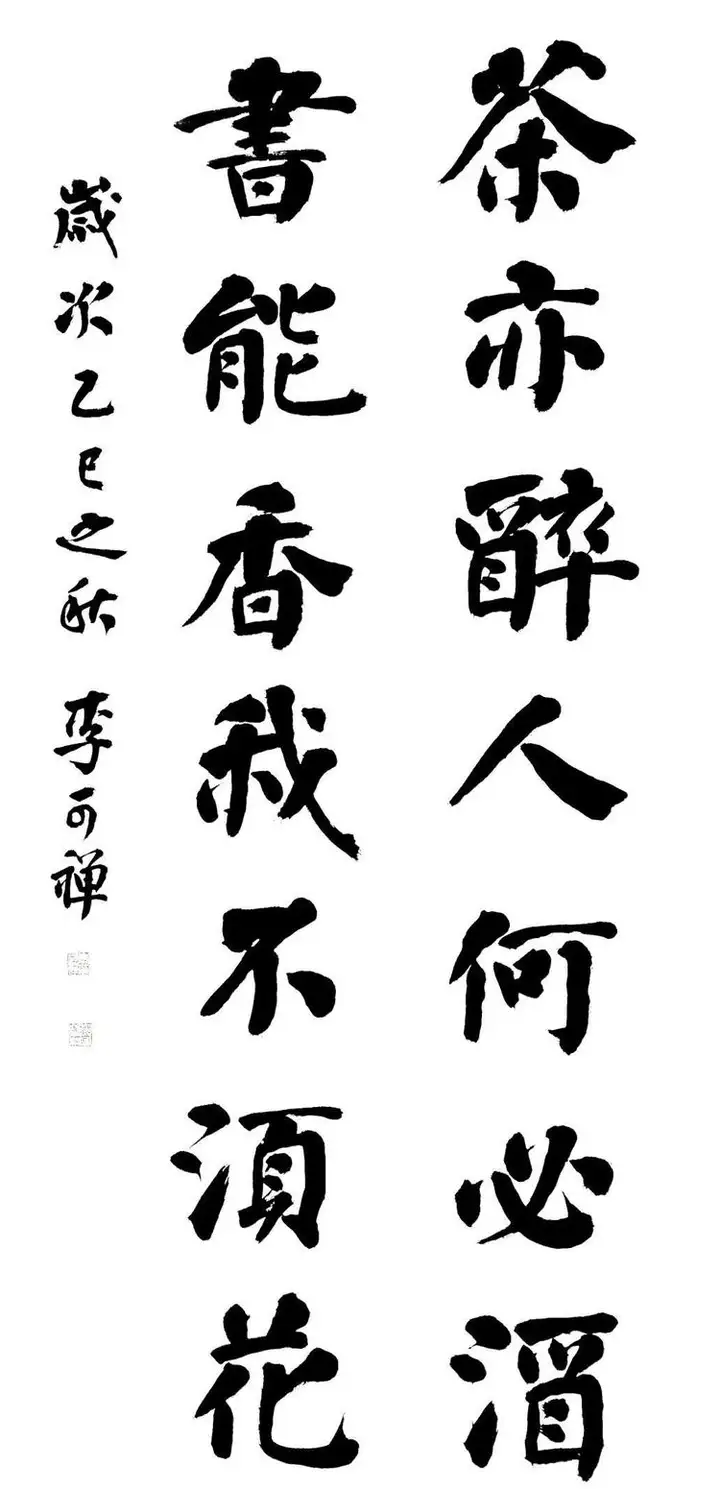 茶亦醉人何必酒
書能香我不須花
歲次乙巳之秋 李可禪